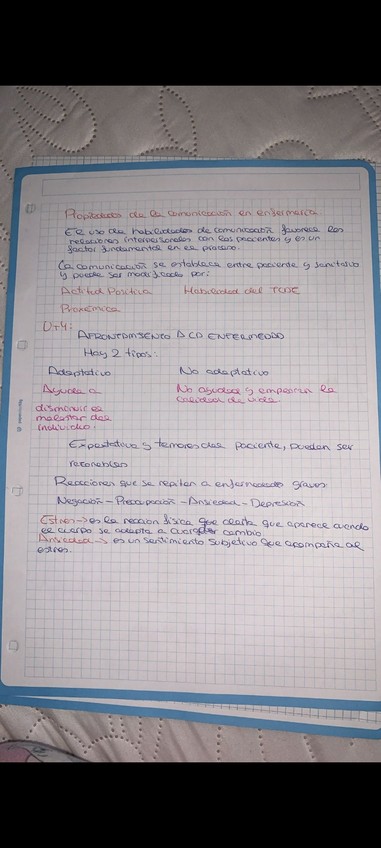 Propiedades de la comunicación en enfermería
El uso de habilidades de comunicación favorece las
relaciones interpersonales con los pacientes y es un
factor fundamental en el proceso.
La comunicación se establece entre paciente y sanitario
y puede ser modificada por:
Actitud Positiva Habilidad del TCAE
Proxémica
D.T4:
AFRONTAMIENTO A LA ENFERMEDAD
Hay 2 tipos:
Adaptativo No adaptativo
Ayuda a No ayudan y empeoran la
calidad de vida
disminuir el
malestar del
individuo.
Expectativas y temores del paciente, pueden ser
razonables
Reacciones que se repiten a enfermedades graves:
Negación - Preocupación - Ansiedad - Depresión
Estres → es la reacción física que aparece cuando
el cuerpo se adapta a cualquier cambio
Ansiedad → es un sentimiento subjetivo que acompaña al
estres.